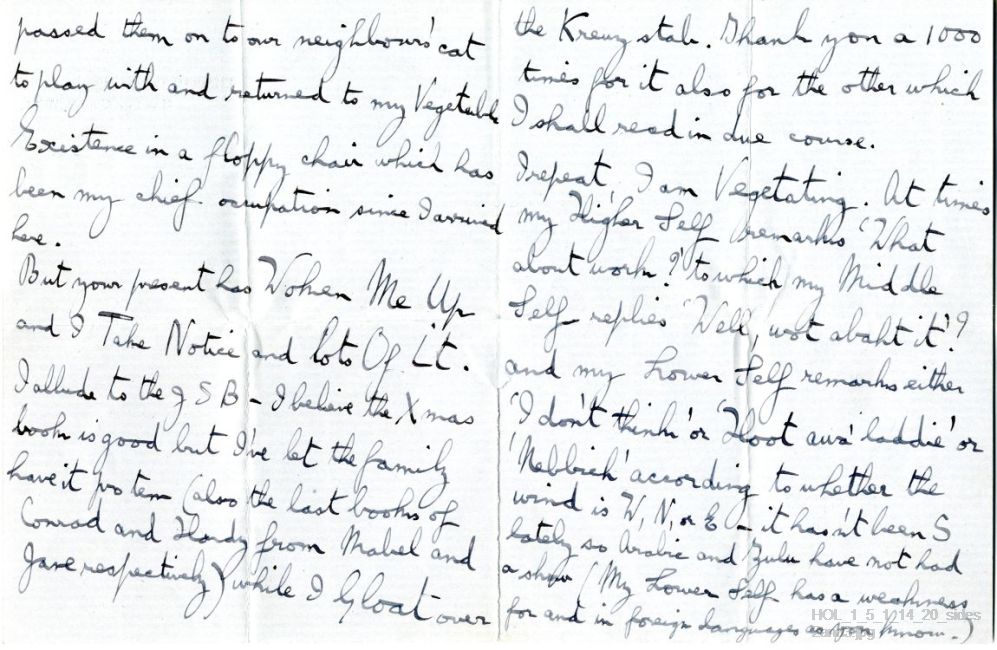 passed them on to our neighbours' cat
to play with and returned to my Vegetable
Existence in a floppy chair which has
been my chief occupation since I arrived
here.
But your present has Woken Me Up
and I Take Notice and lots Of It.
I allude to the J S B – I believe the Xmas
book is good but I've let the family
have it pro tem (also the last books of
Conrad and Hardy from Mabel and
Jane respectively) while I Gloat over
the Kreuzstab. Thank you a 1000
times for it also for the other which
I shall read in due course.
I repeat, I am Vegetating. At times
my Higher Self remarks 'What
about work?' to which my Middle
Self replies 'Well, wot abaht it'?
and my Lower Self remarks either
'I don't think' or 'Hoot awa' laddie' or
'Nebbich' according to whether the
wind is W, N, or E – it hasn't been S
lately so Arabic and Zulu have not had
a show (My Lower Self has a weakness
for and in foreign languages as you know.)
HOL_1_5_1/14_20_sides